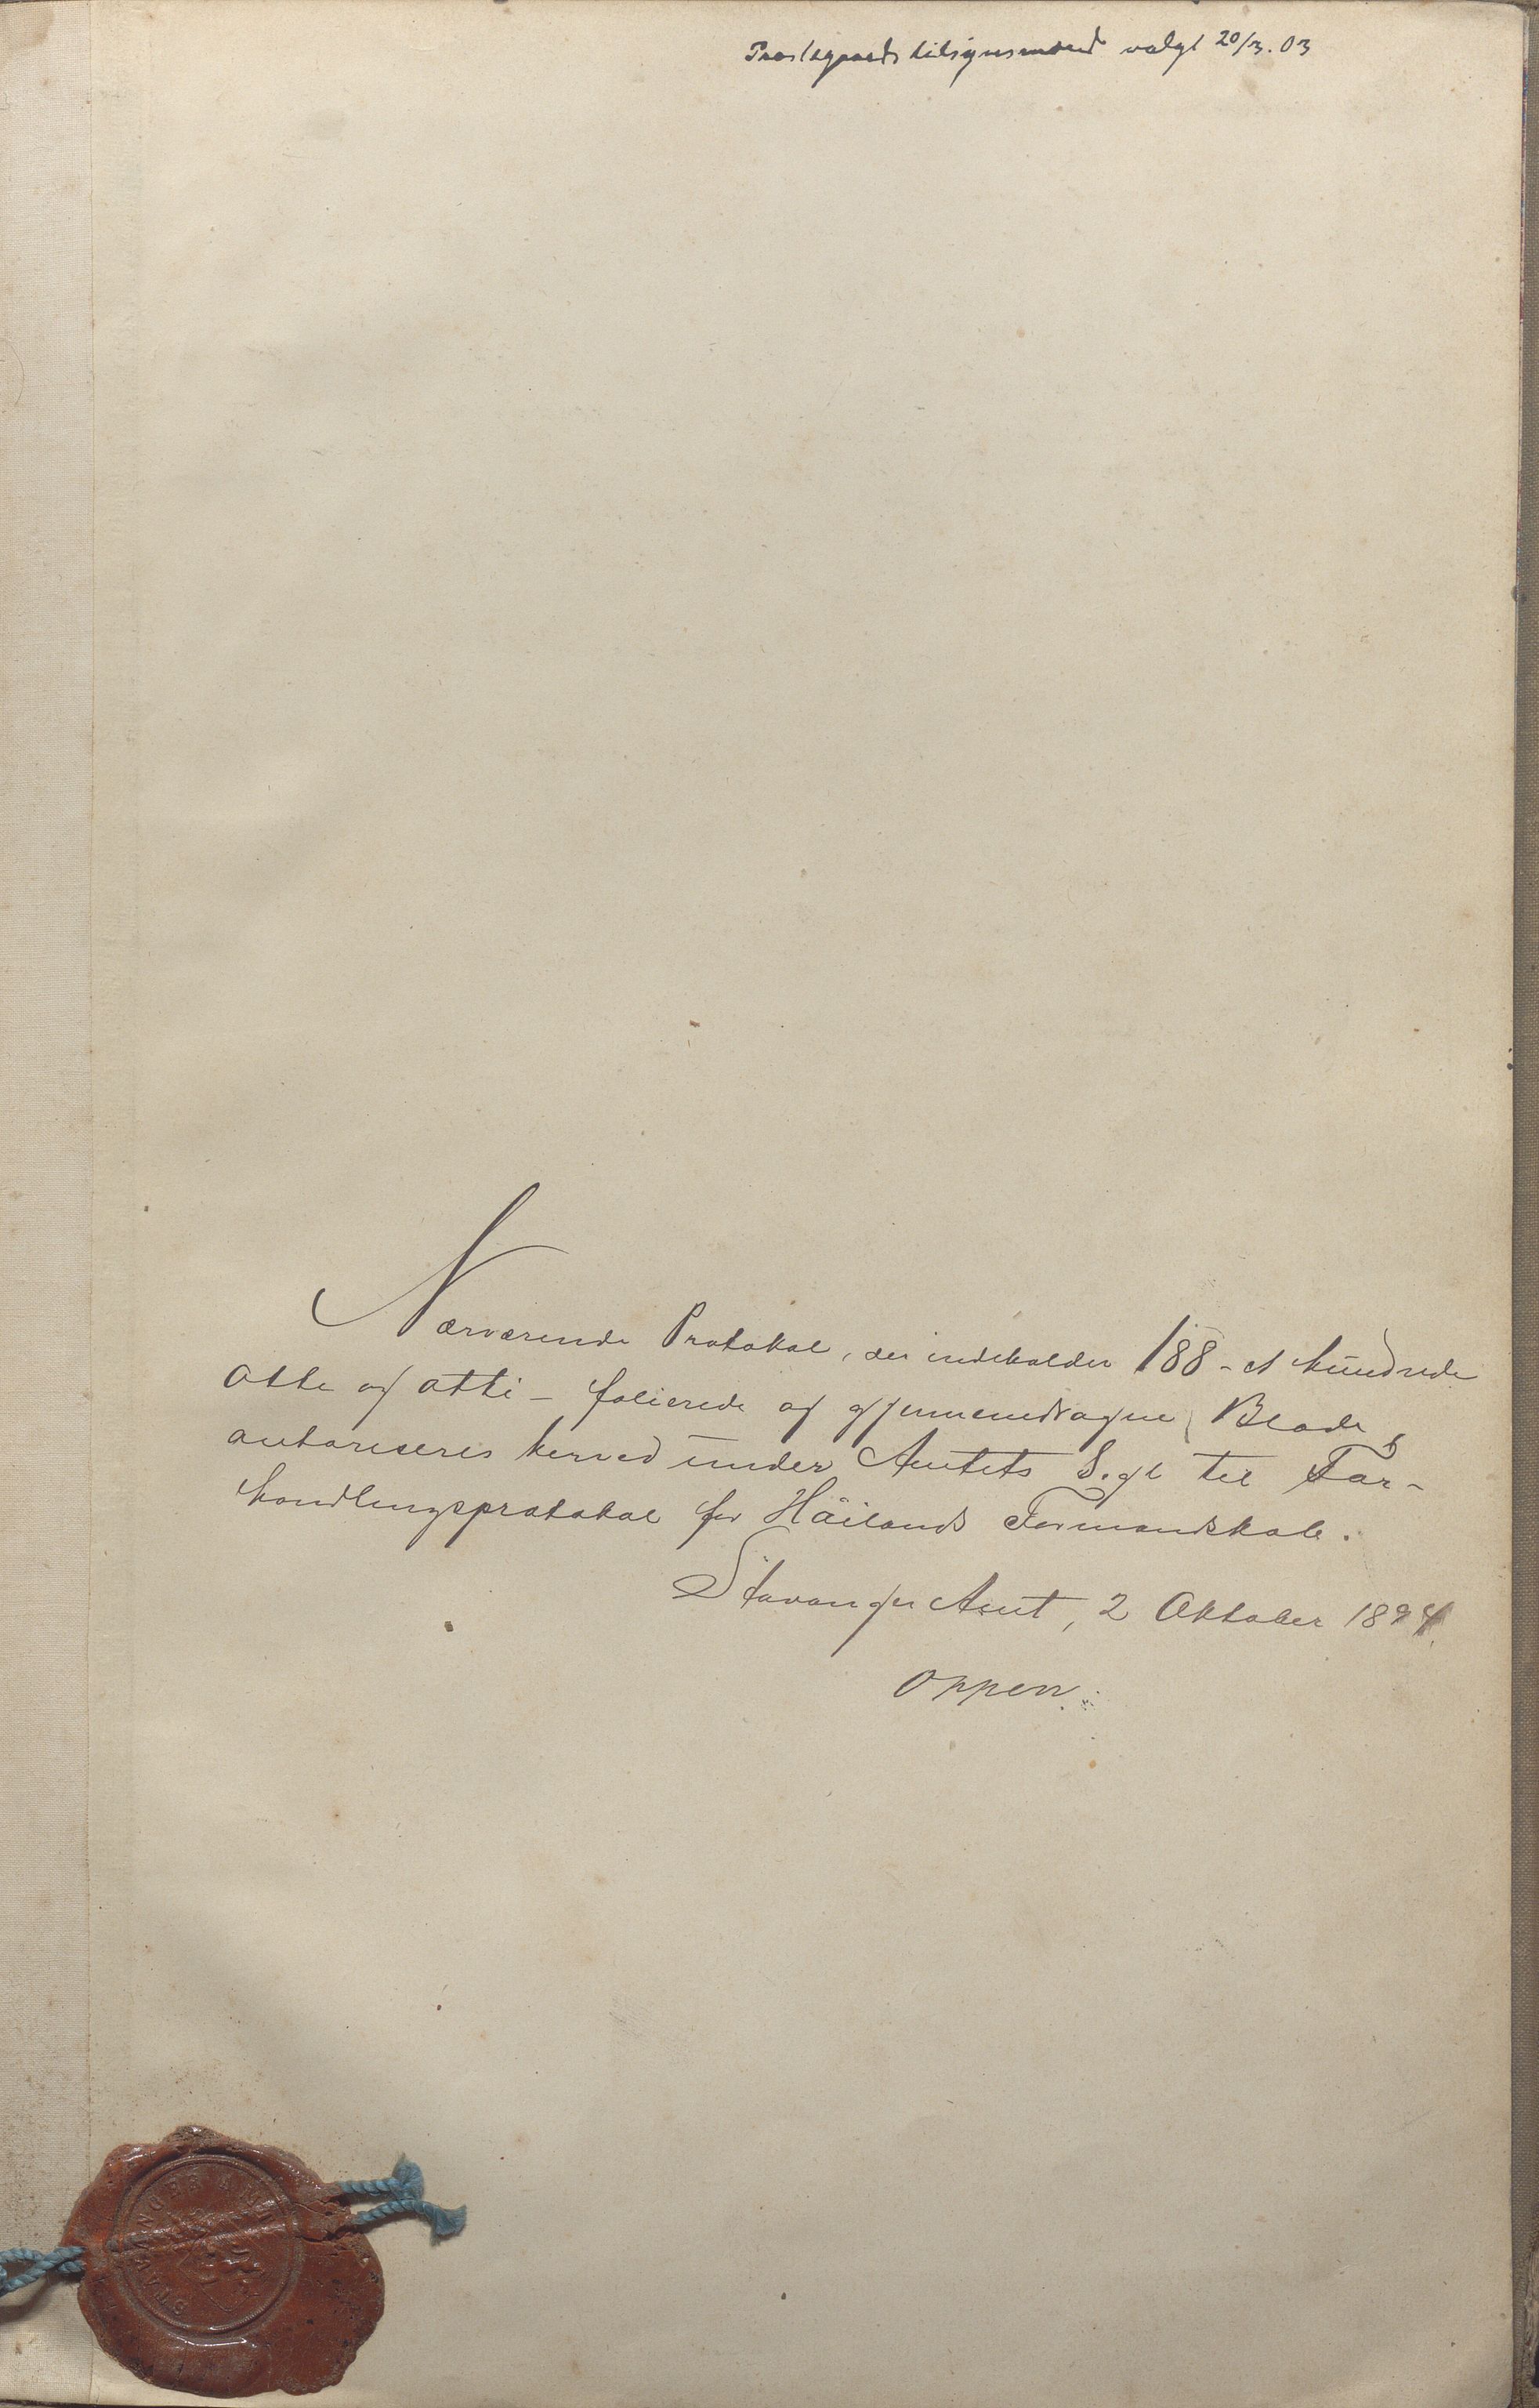 Præstegaardstilsynsmænd valgt 20/3. 03
Nærværende Protokol, der indeholder 188 - et hundrede
otte og otti - folierede og gjennemdragne Blade,
autoriseres herved under Amtets Segl til For-
handlingsprotokol for Høilands Formandskab.
Stavanger Amt, 2 Oktober 1894.
Oppen.
STAVANGER AMT